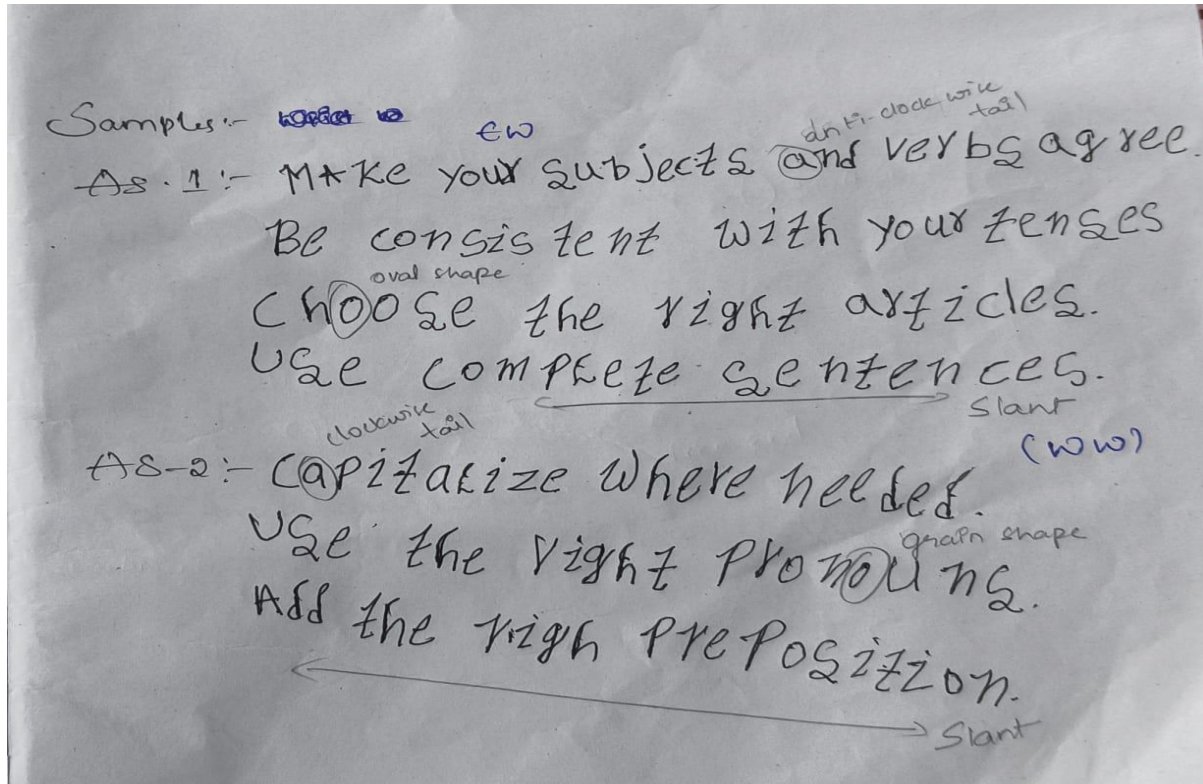 Samples:-
EW
anti-clock wise
tail
AS.1:- MAKe your subjects and verbs agree.
Be consistent with your tenses
oval shape
Choose the right articles.
Use complete sentences.
Slant
clockwise
tail
(WW)
AS-2:- Capitalize where needed.
Use the right Pronouns.
grain shape
Add the righ PrePosition.
Slant